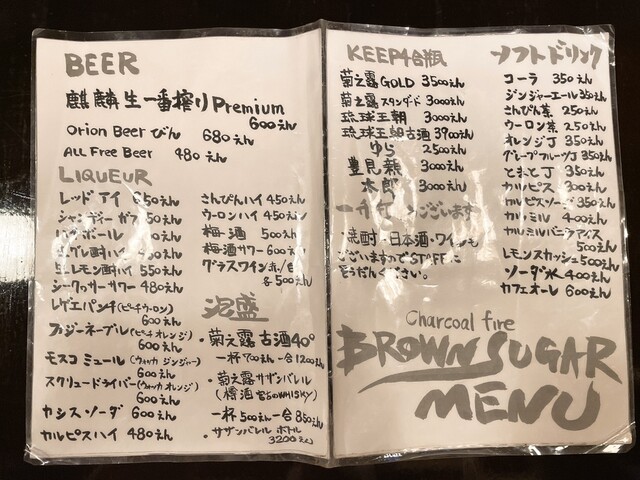 BEER
麒麟生一番搾りPremium
600えん
Orion Beer びん 680えん
ALL Free Beer 480えん
LIQUEUR
レッド アイ 650えん
シャンディー ガフ 550えん
ボール えん
レモン酎ハイ 550えん
シークヮサーサワー 480えん
レゲエパンチ(ピーチウーロン)
600えん
ファジーネーブル(ピーチオレンジ)
600えん
モスコミュール(ウォッカ ジンジャー)
600えん
スクリュードライバー(ウォッカオレンジ)
600えん
カシスソーダ 600えん
カルピスハイ 480えん
さんぴんハイ 450えん
ウーロンハイ 450えん
梅酒 500えん
梅酒サワー 600えん
グラスワイン赤/白
各500えん
泡盛
・菊之露 古酒40°
一杯700えん 一合1200えん
・菊之露サザンバレル
(樽酒 宮古のWHISKY)
一杯500えん 一合850えん
・サザンバレル ボトル
3200えん
KEEP4合瓶
菊之露GOLD 3500えん
菊之露スタンダード 3000えん
琉球王朝 3000えん
琉球王朝古酒 3900えん
ゆら 2500えん
豊見親 3000えん
太郎 3000えん
ございます
・焼酎・日本酒・ワインも
ございますのでSTAFFに
そうだんください。
ソフトドリンク
コーラ 350えん
ジンジャーエール 350えん
さんぴん茶 250えん
ウーロン茶 250えん
オレンジJ 350えん
グレープフルーツJ 350えん
とまとJ 350えん
カルピス 300えん
カルピスソーダ 350えん
カルミル 400えん
カルミルバニラアイス
500えん
レモンスカッシュ 500えん
ソーダ水 400えん
カフェオーレ 600えん
Charcoal fire
BROWN SUGAR
MENU